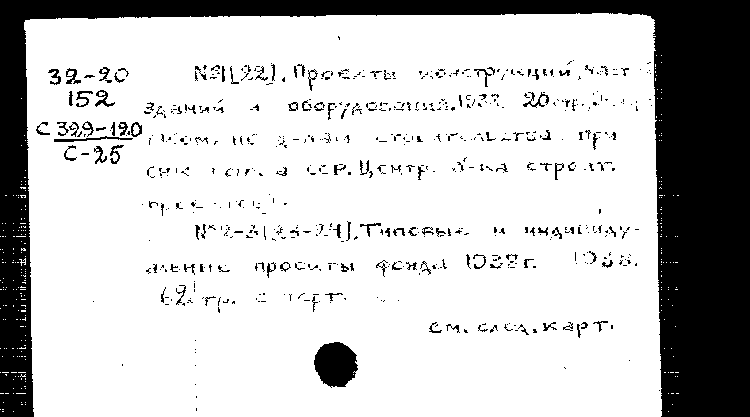 32-20
152
С 399-120
С-25
№1[22]. Проекты конструкций, част
зданий и оборудования. 1938. 20 стр.
Ком. по делам строительства при
СНК СССР. Центр. б-ка строит.
проектов.
№2-3[23-24]. Типовые и индивиду-
альные проекты фонда 1938 г. 1938.
62 стр. с черт.
см. след. карт.